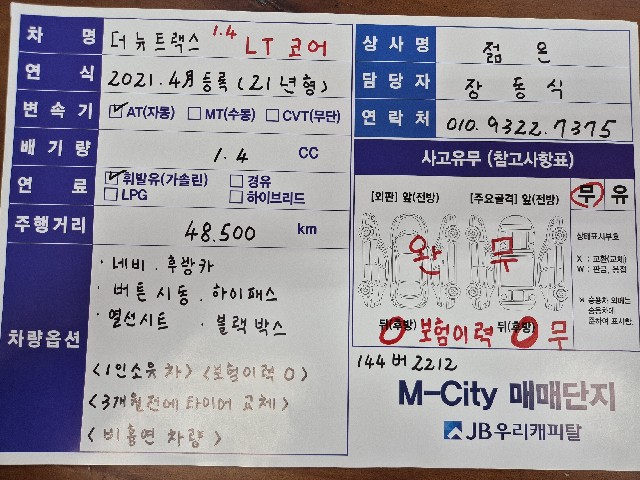 차 명 더 뉴 트랙스 1.4 LT 코어
연 식 2021. 4月 등록 (21년형)
변 속 기 ☑AT(자동) ☐MT(수동) ☐CVT(무단)
배 기 량 1.4 CC
연 료 ☑휘발유(가솔린) ☐경유
☐LPG ☐하이브리드
주행거리 48.500 km
차량옵션
· 네비 . 후방카
· 버튼시동 . 하이패스
· 열선시트 . 블랙박스
<1인소유차> <보험이력 0>
<3개월전에 타이어 교체>
<비흡연 차량>
상 사 명 젊 은
담 당 자 장 동 식
연 락 처 010. 9322. 7375
사고유무 (참고사항표)
[외판] 앞(전방) [주요골격] 앞(전방) 무 유
상태표시부호
X : 교환(교체)
W : 판금, 용접
완 무
※ 승용차 외에는
승용차에
준하여 표시함.
뒤(후방) 뒤(후방)
0 보험이력 0 무
144버2212
M-City 매매단지
JB우리캐피탈